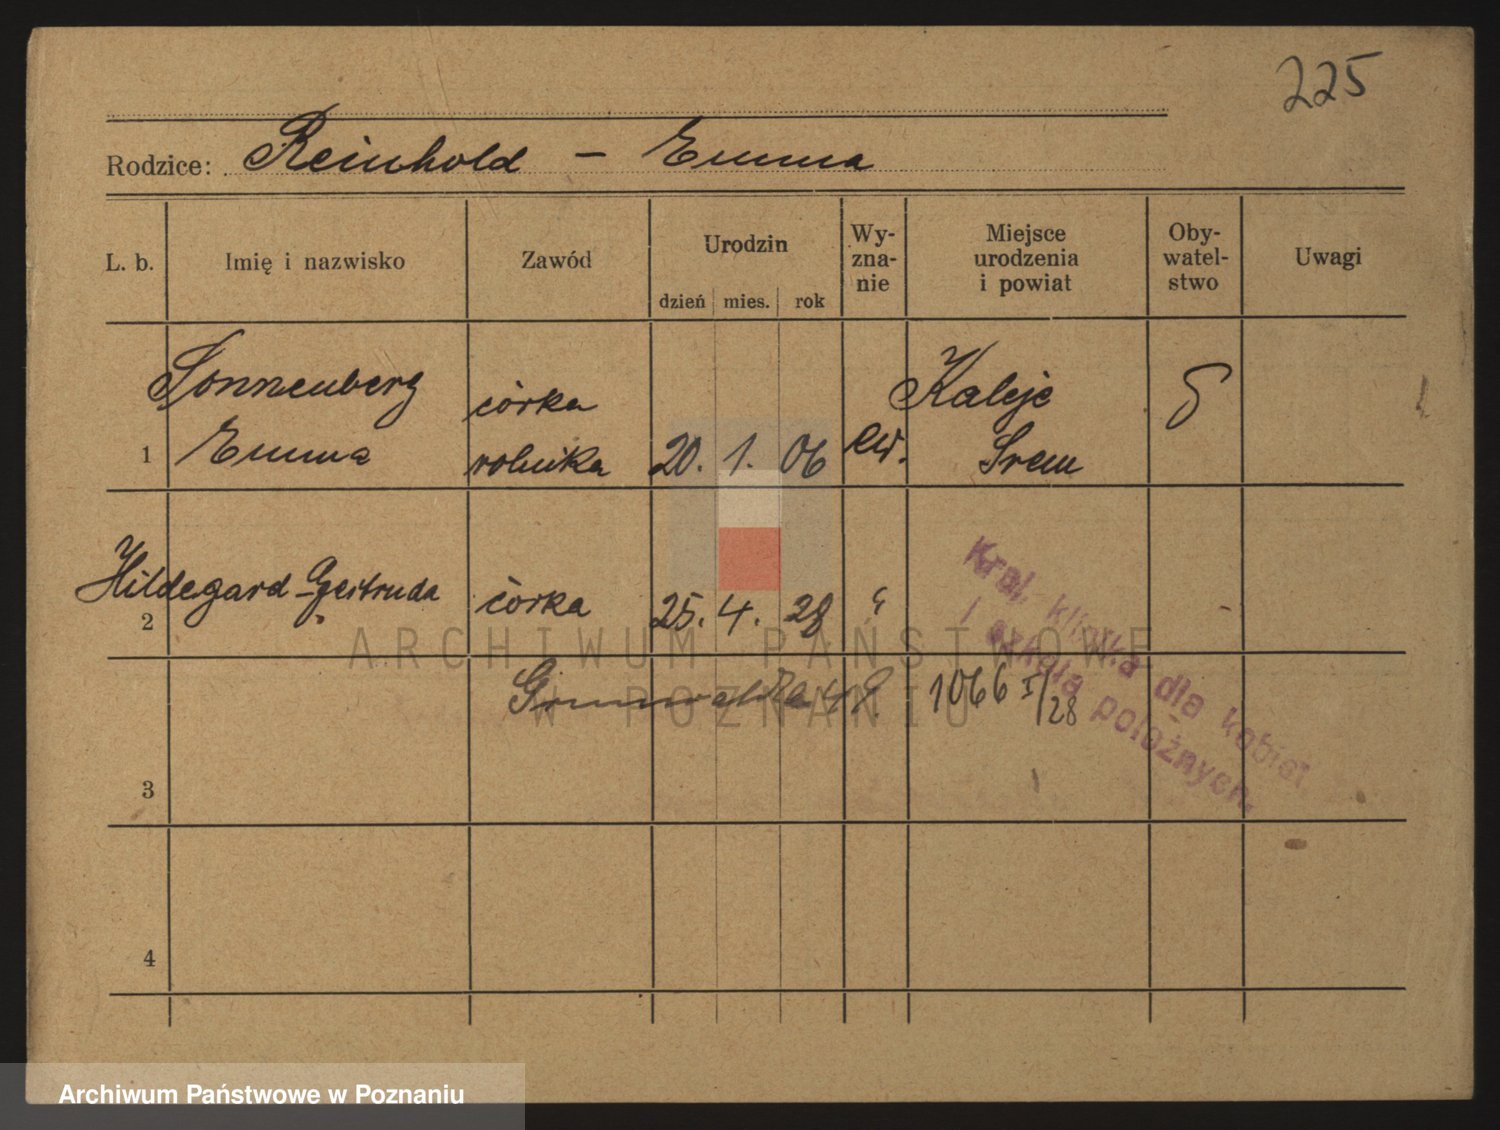 225
Rodzice: Reinhold – Emma
L. b. Imię i nazwisko Zawód Urodzin dzień mies. rok Wy-zna-nie Miejsce urodzenia i powiat Oby-watel-stwo Uwagi
Sonnenberg córka Kaleje
1 Emma rolnika 20. 1. 06 ew. Śrem
Hildegard-Gertruda
2 córka 25. 4. 28 "
Grunwaldzka 48. 1066 I/28
Kraj. klinika dla kobiet
i szkoła położnych.
3
4
ARCHIWUM PAŃSTWOWE
W POZNANIU
Archiwum Państwowe w Poznaniu